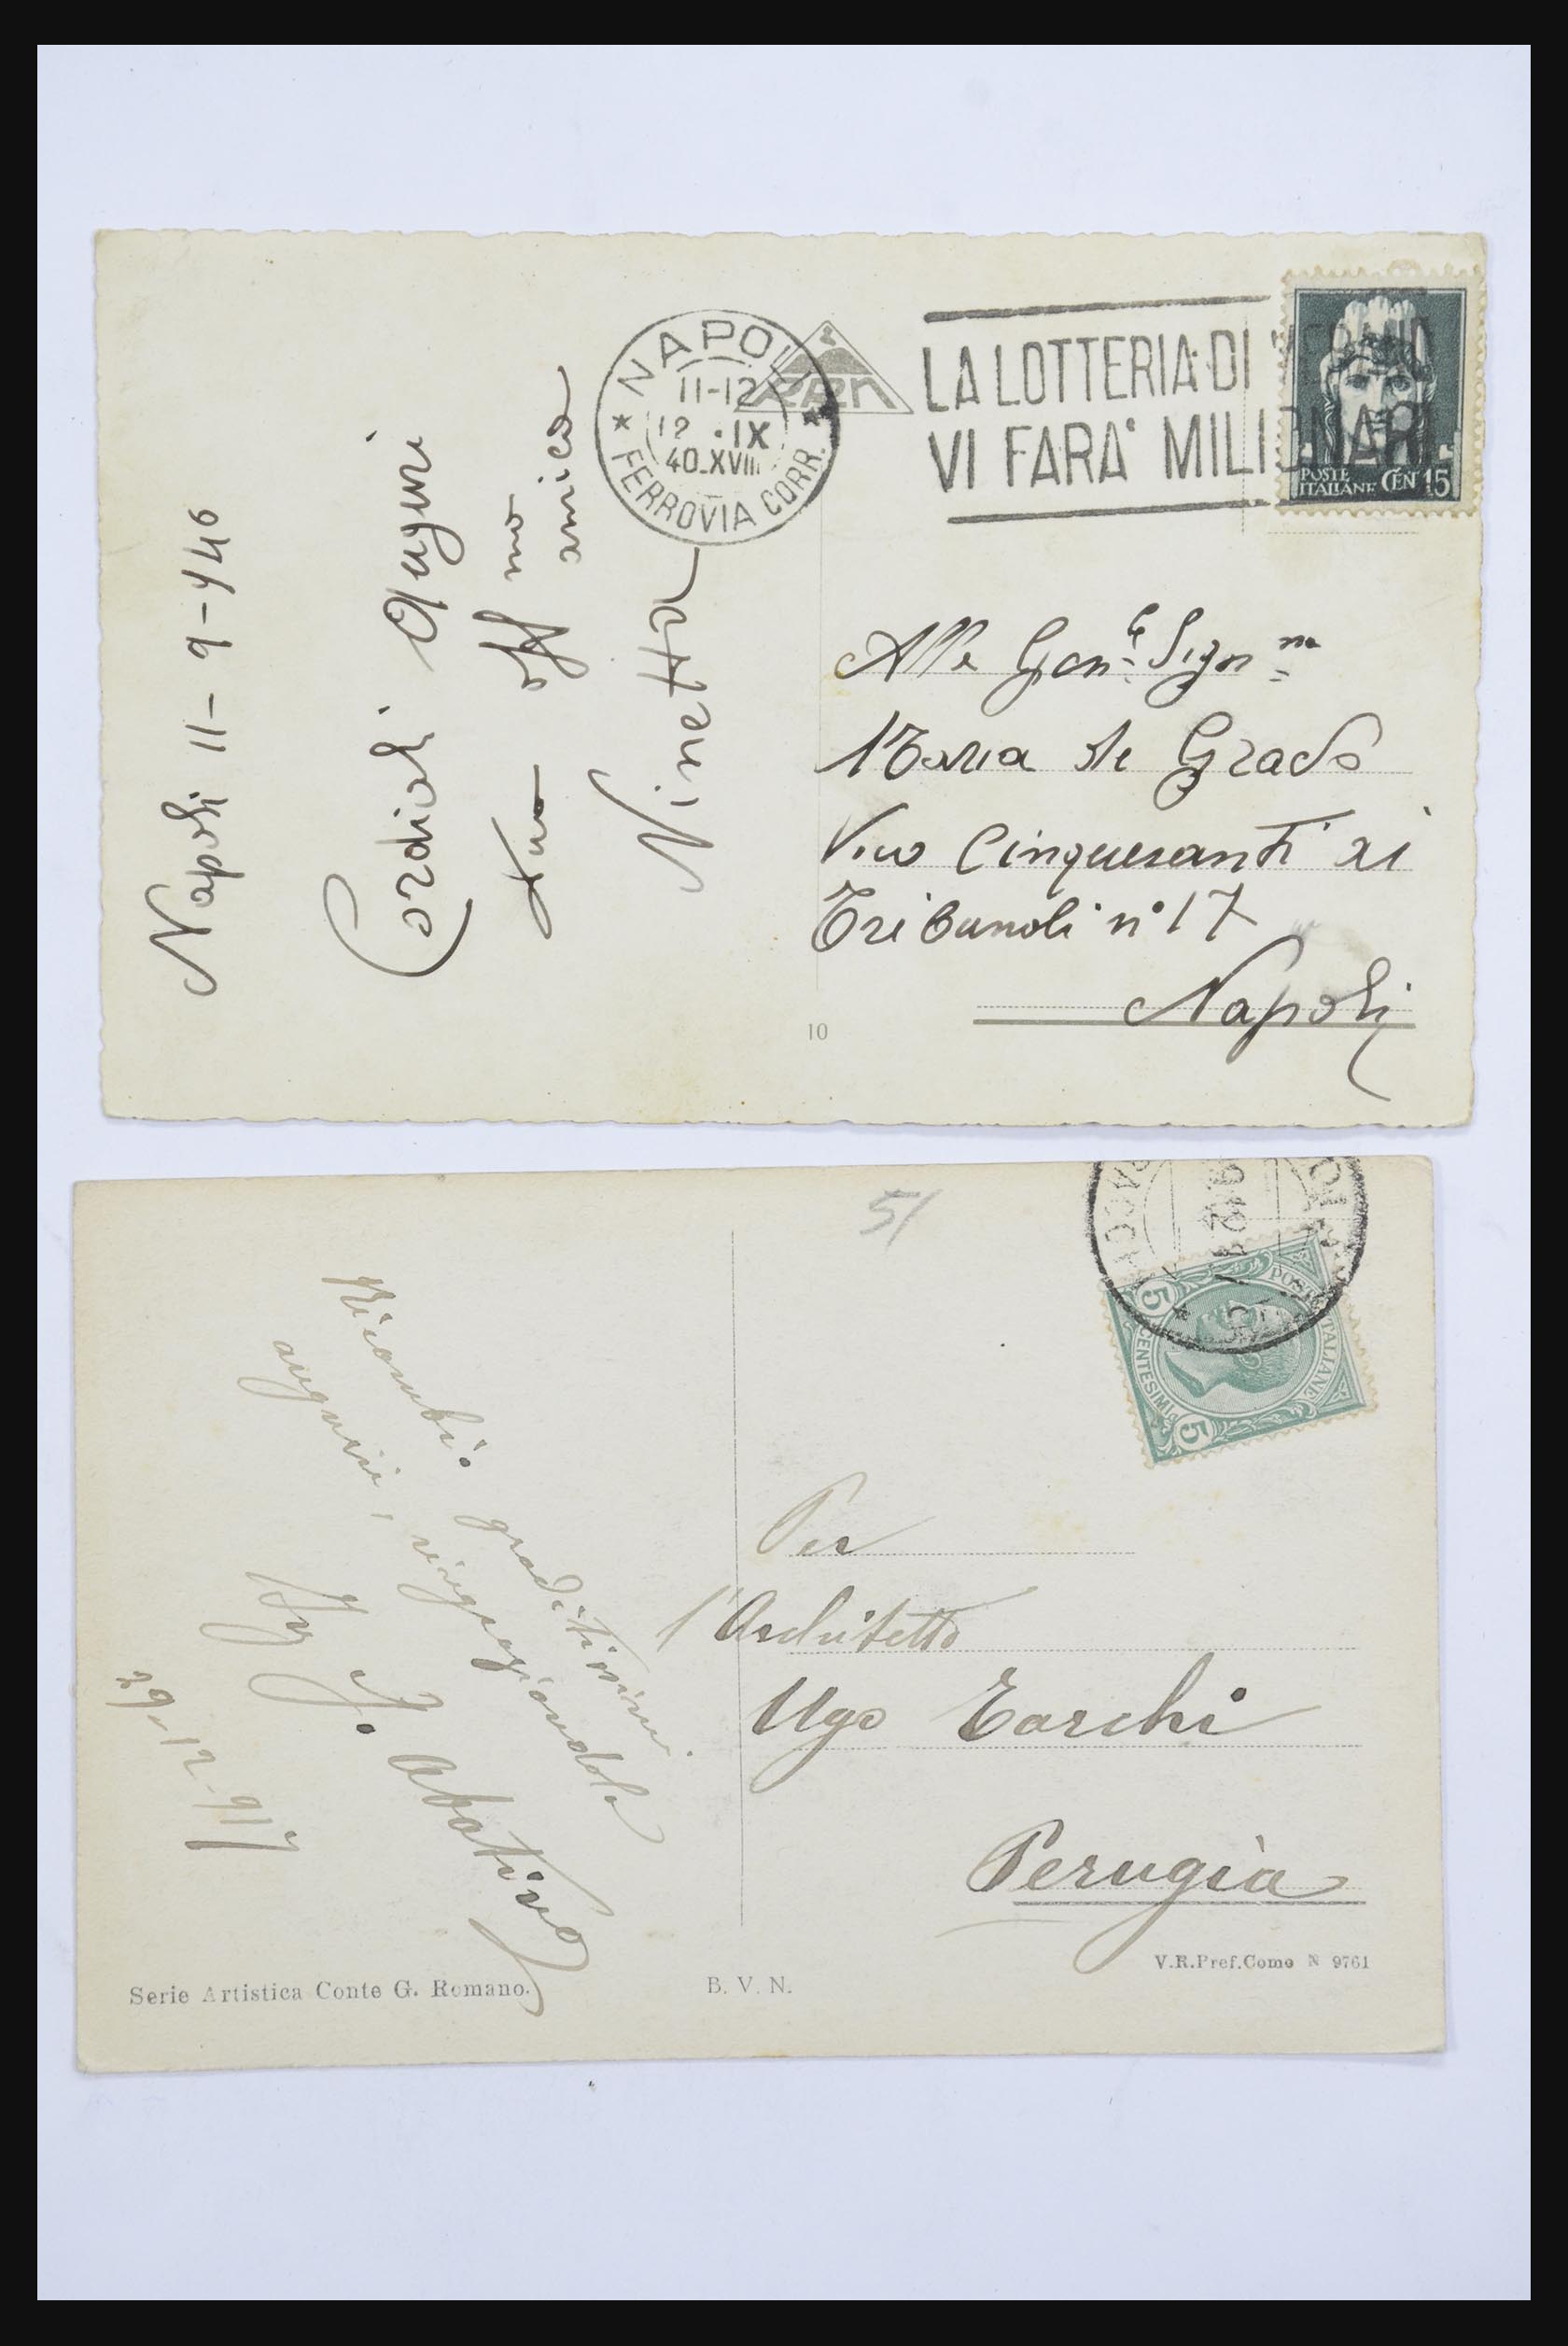 Napoli 11-9-940
Cordiali Auguri
aff mo
amico
Ninetta
NAPOLI
11-12
12 .IX
40.XVIII
FERROVIA CORR.
LA LOTTERIA DI MERANO
VI FARA' MILIONARI
POSTE
ITALIANE CEN 15
Alle Gen. Sign na
Maria de Grado
Vico Cinquesanti ai
Tribunali n° 17
Napoli
10
51
POSTE ITALIANE
CENTESIMI
5
5
Ricambio graditissimi
auguri, ringraziandola
J. Abatino
29-12-917
Per
l'Architetto
Ugo Tarchi
Perugia
V.R.Pref.Como N 9761
Serie Artistica Conte G. Romano.
B. V. N.